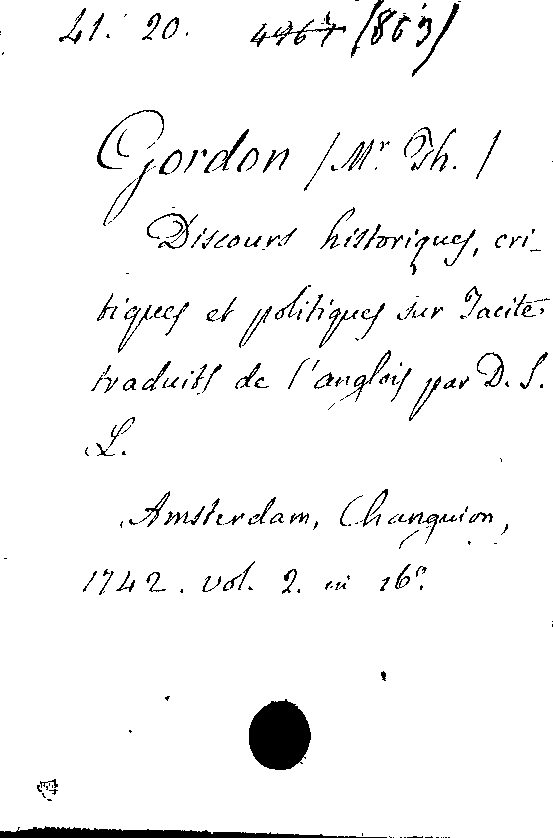 41. 20. 4467 (863)
Gordon / Mr. Th. /
Discours historiques, cri-
tiques et politiques sur Tacite,
traduits de l'anglois par D. S.
L.
Amsterdam, Changuion,
1742. vol. 2. in 16°.